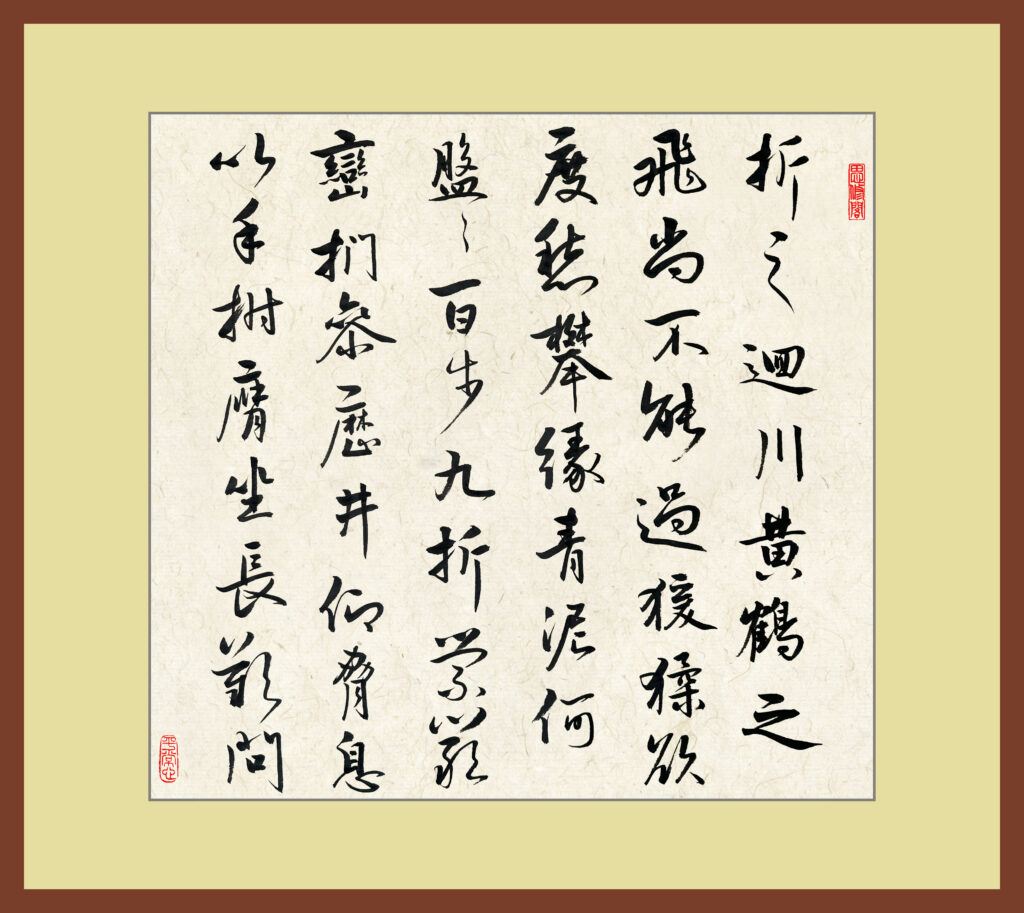 思修閣
折之迴川黄鶴之
飛尚不能過猨猱欲
度愁攀緣青泥何
盤〻百步九折縈巖
巒捫參歷井仰脅息
以手拊膺坐長歎問
平常心